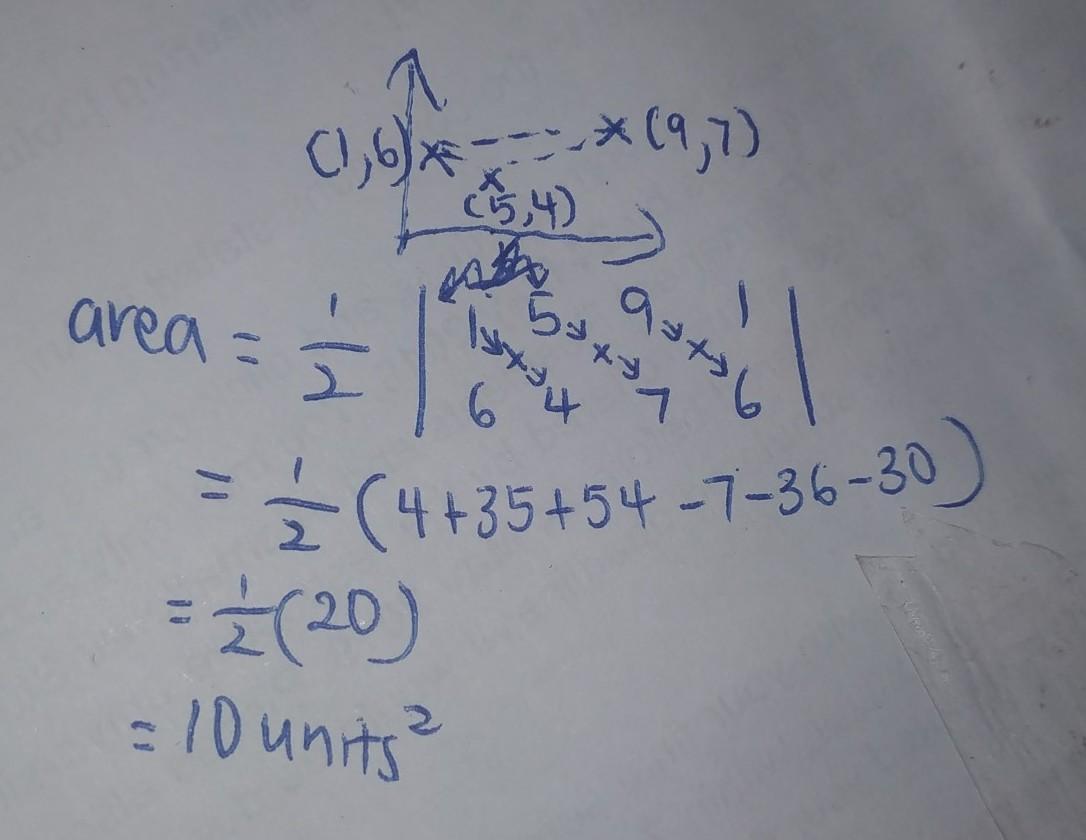 (1,6) (9,7)
(5,4)
area = 1/2 | 1 5 9 1 |
6 4 7 6
= 1/2 (4+35+54-7-36-30)
= 1/2 (20)
= 10 units²